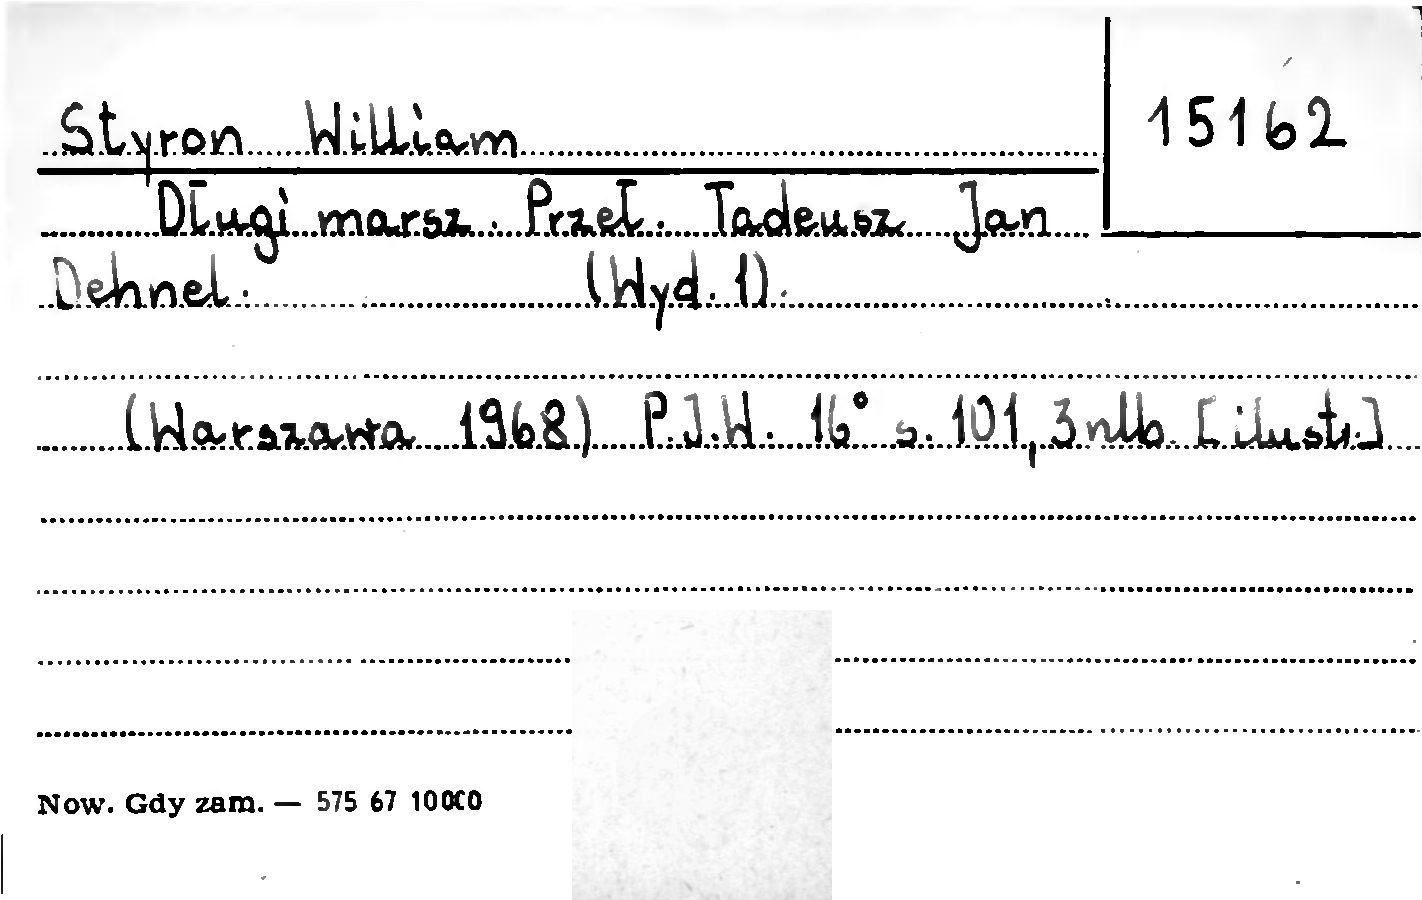 Styron William
15162
Długi marsz. Przeł. Tadeusz Jan
Dehnel. (Wyd. 1).
(Warszawa 1968) P.I.W. 16° s. 101, 3 nlb. [ilustr.]
Now. Gdy zam. — 575 67 10000